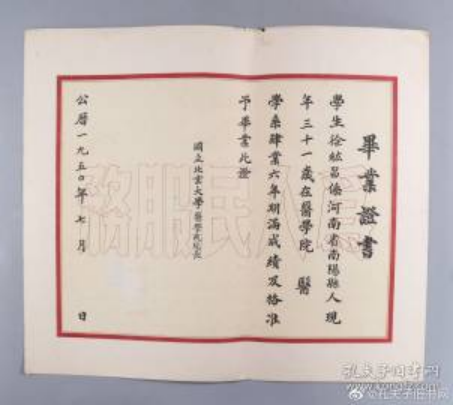 畢業證書
學生徐紘昌係河南省南陽縣人現
年三十一歲在醫學院 醫
學系肄業六年期滿成績及格准
予畢業此證
國立北京大學醫學院院長
公曆一九五〇年七月 日
為人民服務
孔夫子旧书网
@孔夫子旧书网